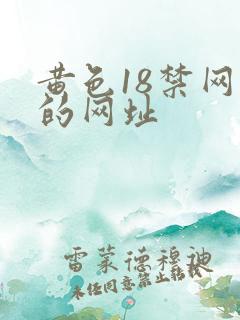 黄色18禁网
的网址
雷蒙德穆迪
未经同意禁止转载